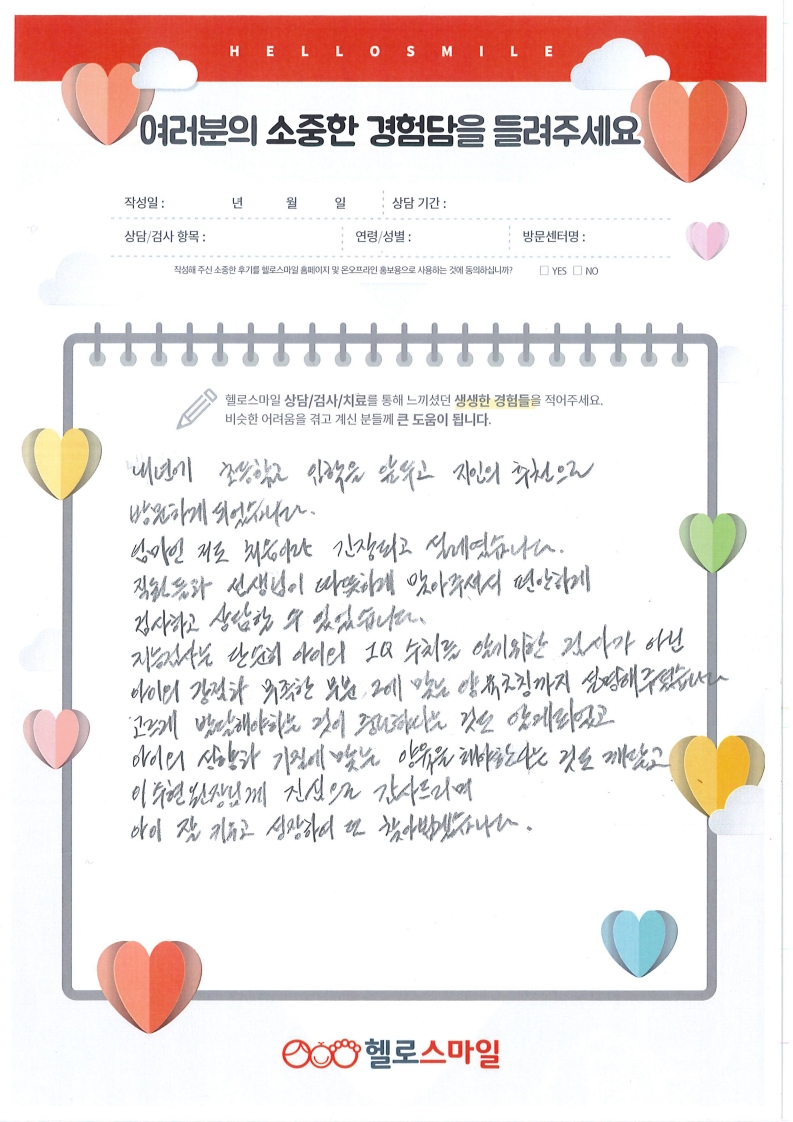 HELLOSMILE
여러분의 소중한 경험담을 들려주세요
작성일 : 년 월 일 상담 기간 :
상담/검사 항목 : 연령/성별 : 방문센터명 :
작성해 주신 소중한 후기를 헬로스마일 홈페이지 및 온오프라인 홍보용으로 사용하는 것에 동의하십니까? □ YES □ NO
헬로스마일 상담/검사/치료를 통해 느끼셨던 생생한 경험들을 적어주세요.
비슷한 어려움을 겪고 계신 분들께 큰 도움이 됩니다.
내년에 초등학교 입학을 앞두고 지인의 추천으로
방문하게 되었습니다.
엄마인 저도 처음이라 긴장되고 설레였습니다.
직원분과 선생님이 따뜻하게 맞아주셔서 편안하게
검사하고 상담할 수 있었습니다.
지능검사는 단순히 아이의 IQ 수치를 알기위한 검사가 아닌
아이의 강점과 부족한 부분, 그에 맞는 양육코칭까지 설명해주셨습니다
고르게 발달해야하는 것이 중요하다는 것도 알게되었고
아이의 성향과 기질에 맞는 양육을 해야한다는 것도 깨닫고
이수현 원장님께 진심으로 감사드리며
아이 잘 키우고 성장하여 또 찾아뵙겠습니다.
헬로스마일